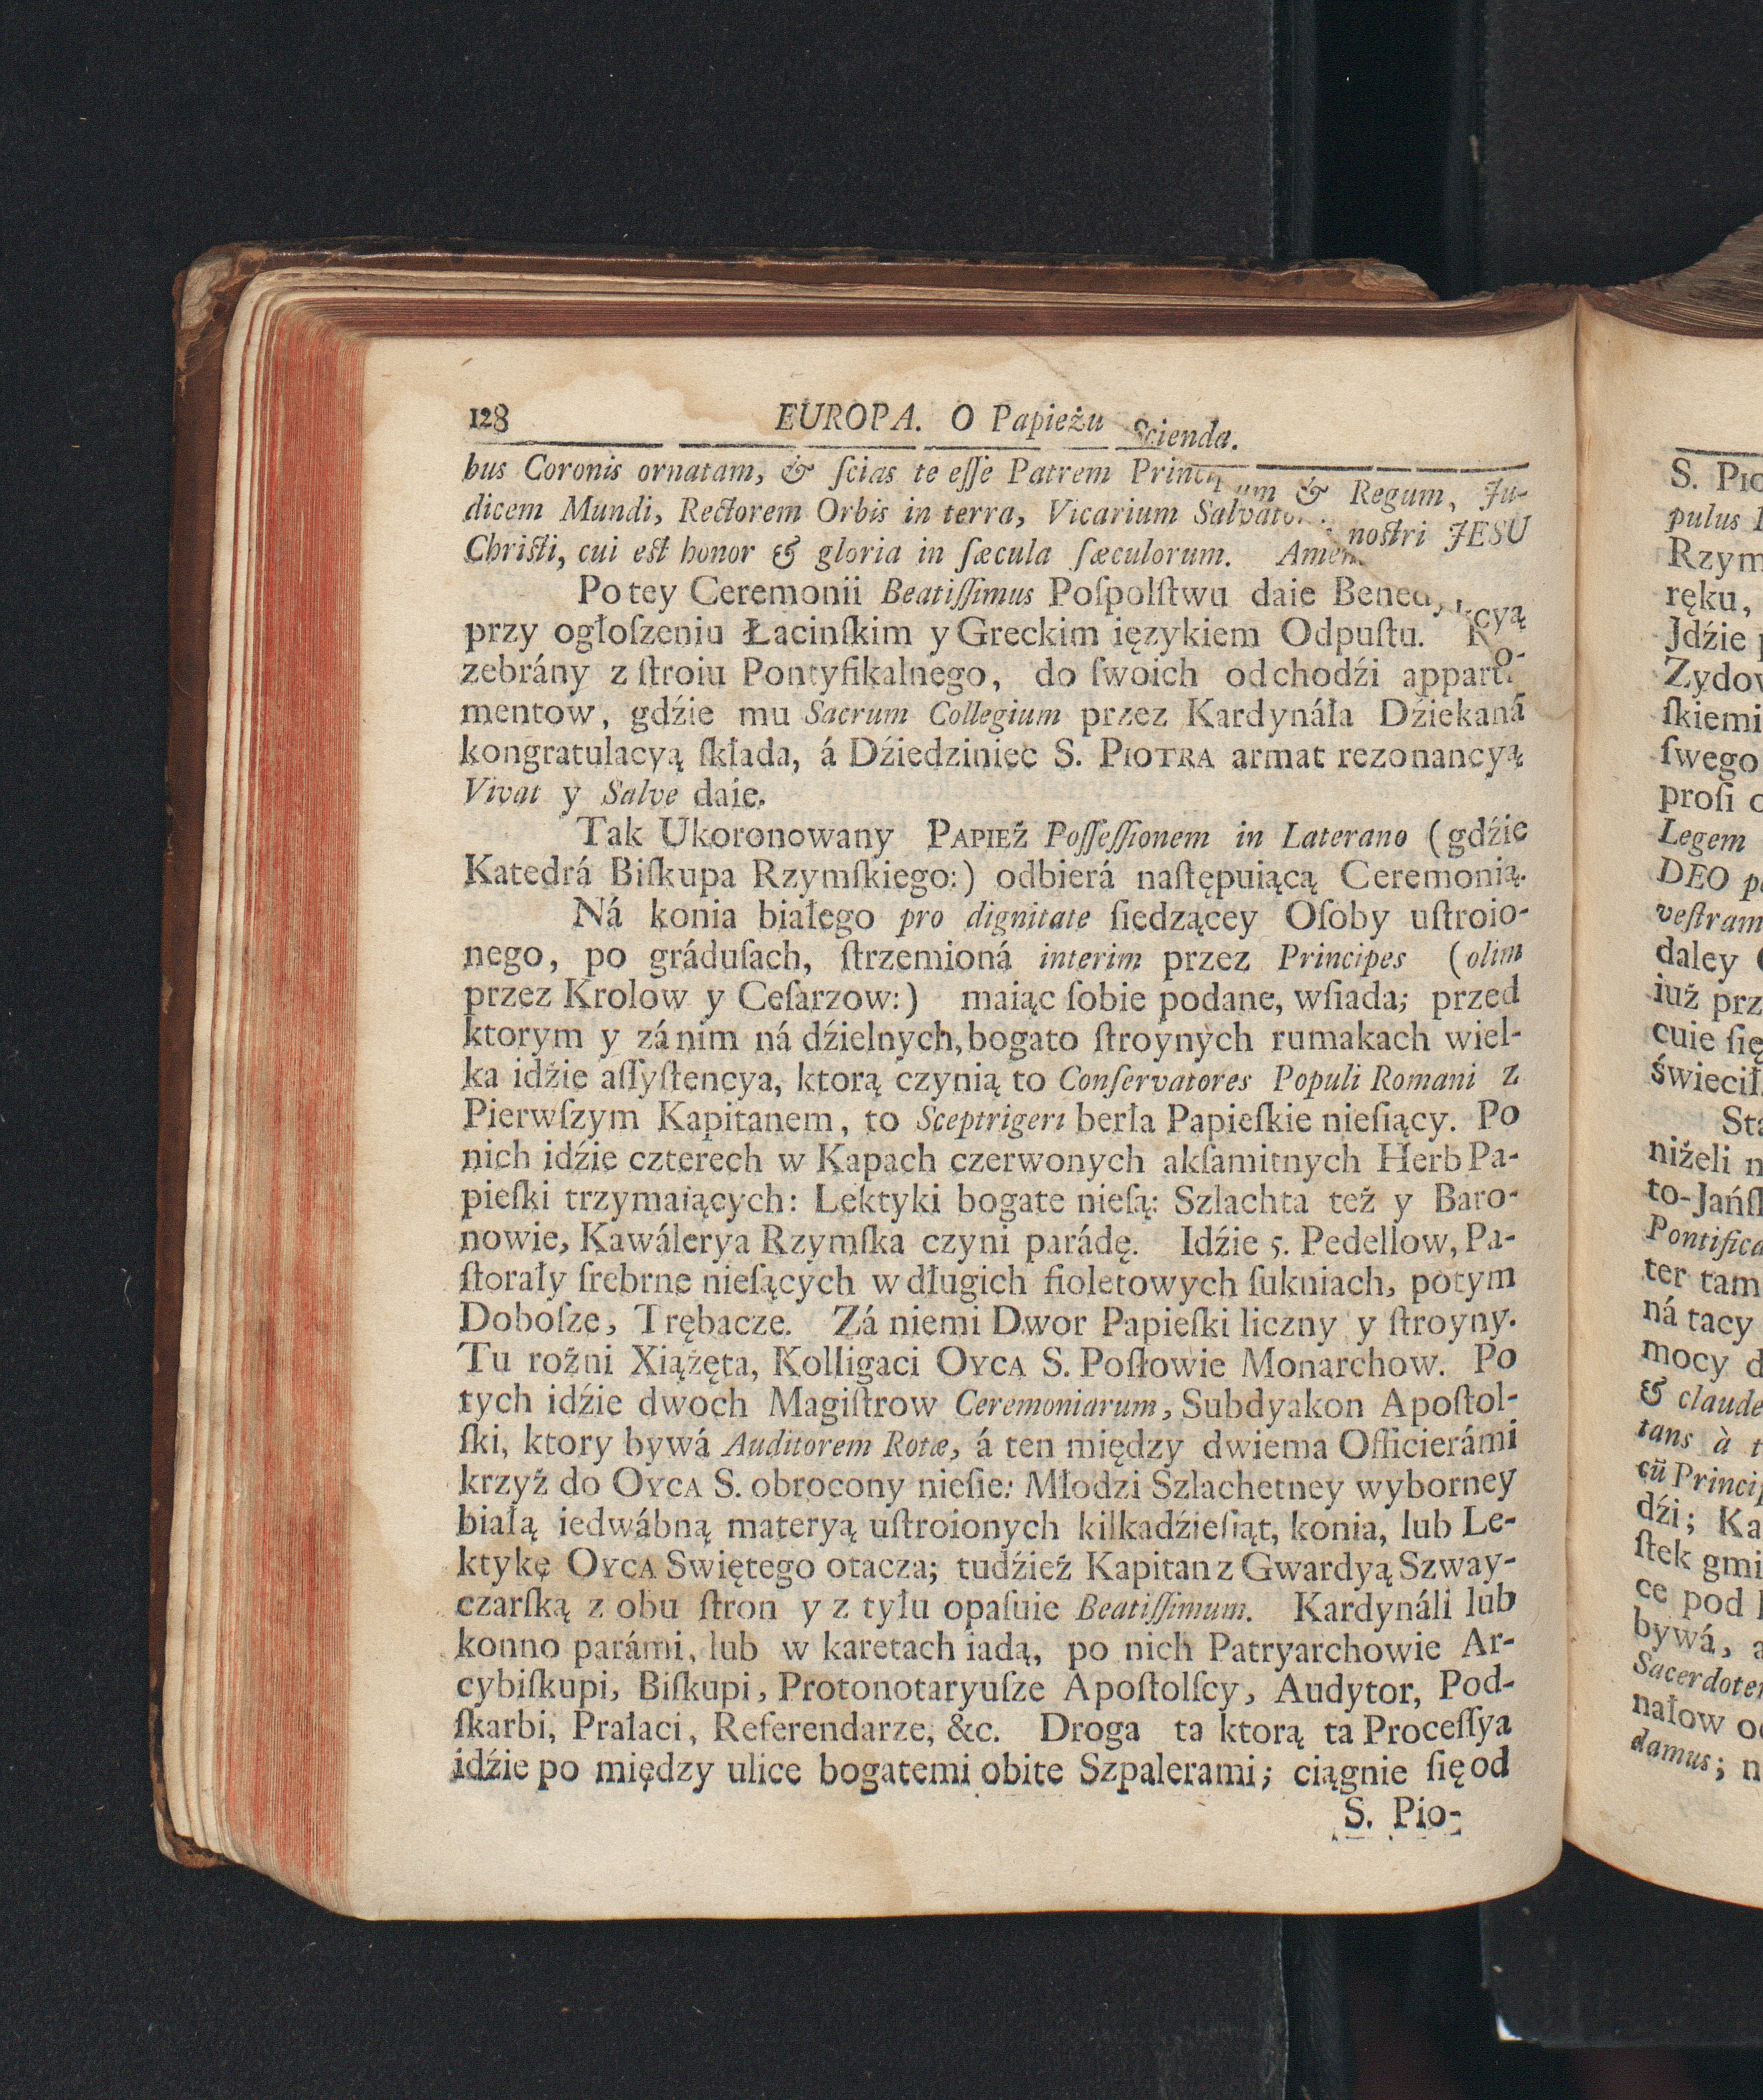 128 EUROPA. O Papieżu Scienda.
bus Coronis ornatam, & ſcias te eſſe Patrem & Regum, Ju-
dicem Mundi, Rectorem Orbis in terra, Vicarium nostri JESU
Chriſti, cui eſt honor & gloria in ſæcula ſæculorum. Amen.
Po tey Ceremonii Beatiſſimus Poſpolſtwu daie
przy ogłoſzeniu Łacinſkim y Greckim ięzykiem Odpuſtu. Ro-
zebrány z ſtroiu Pontyfikalnego, do ſwoich odchodźi
mentow, gdźie mu Sacrum Collegium przez Kardynáła Dźiekaná
kongratulacyą ſkłada, á Dźiedziniec S. PIOTRA armat rezonancyą
Vivat y Salve daie.
Tak Ukoronowany PAPIEŻ Poſſeſſionem in Laterano (gdźie
Katedrá Biſkupa Rzymſkiego:) odbierá naſtępuiącą Ceremonią.
Ná konia białego pro dignitate ſiedzącey Oſoby uſtroio-
nego, po gráduſach, ſtrzemioná interim przez Principes (olim
przez Krolow y Ceſarzow:) maiąc ſobie podane, wſiada; przed
ktorym y zá nim ná dźielnych, bogato ſtroynych rumakach wiel-
ka idźie aſſyſtencya, ktorą czynią to Conſervatores Populi Romani z
Pierwſzym Kapitanem, to Sceptrigeri berła Papieſkie nieſiący. Po
nich idźie czterech w Kapach czerwonych akſamitnych Herb Pa-
pieſki trzymaiących: Lektyki bogate nieſą: Szlachta też y Baro-
nowie, Kawálerya Rzymſka czyni parádę. Idźie 5. Pedellow, Pa-
ſtorały ſrebrne nieſących w długich fioletowych ſukniach, potym
Doboſze, Trębacze. Zá niemi Dwor Papieſki liczny y ſtroyny.
Tu rożni Xiążęta, Kolligaci OYCA S. Poſłowie Monarchow. Po
tych idźie dwoch Magiſtrow Ceremoniarum, Subdyakon Apoſtol-
ſki, ktory bywá Auditorem Rotæ, á ten między dwiema Officierámi
krzyż do OYCA S. obrocony nieſie: Młodzi Szlachetney wyborney
białą iedwábną materyą uſtroionych kilkadźieſiąt, konia, lub Le-
ktykę OYCA Swiętego otacza; tudźież Kapitan z Gwardyą Szway-
czarſką z obu ſtron y z tyłu opaſuie Beatiſſimum. Kardynáli lub
konno parámi, lub w karetach iadą, po nich Patryarchowie Ar-
cybiſkupi, Biſkupi, Protonotaryuſze Apoſtolſcy, Audytor, Pod-
ſkarbi, Prałaci, Referendarze, &c. Droga ta ktorą ta Proceſſya
idźie po między ulice bogatemi obite Szpalerami; ciągnie ſię od
S. Pio-
S.
pulus
ręku,
Jdźie
ſkiemi
ſwego
proſi
Legem
DEO
veſtram
daley
iuż
cuie
niżeli
ter tam
ná tacy
mocy
& claude
tans à
dźi;
ce pod
bywá,
nałow
damus;